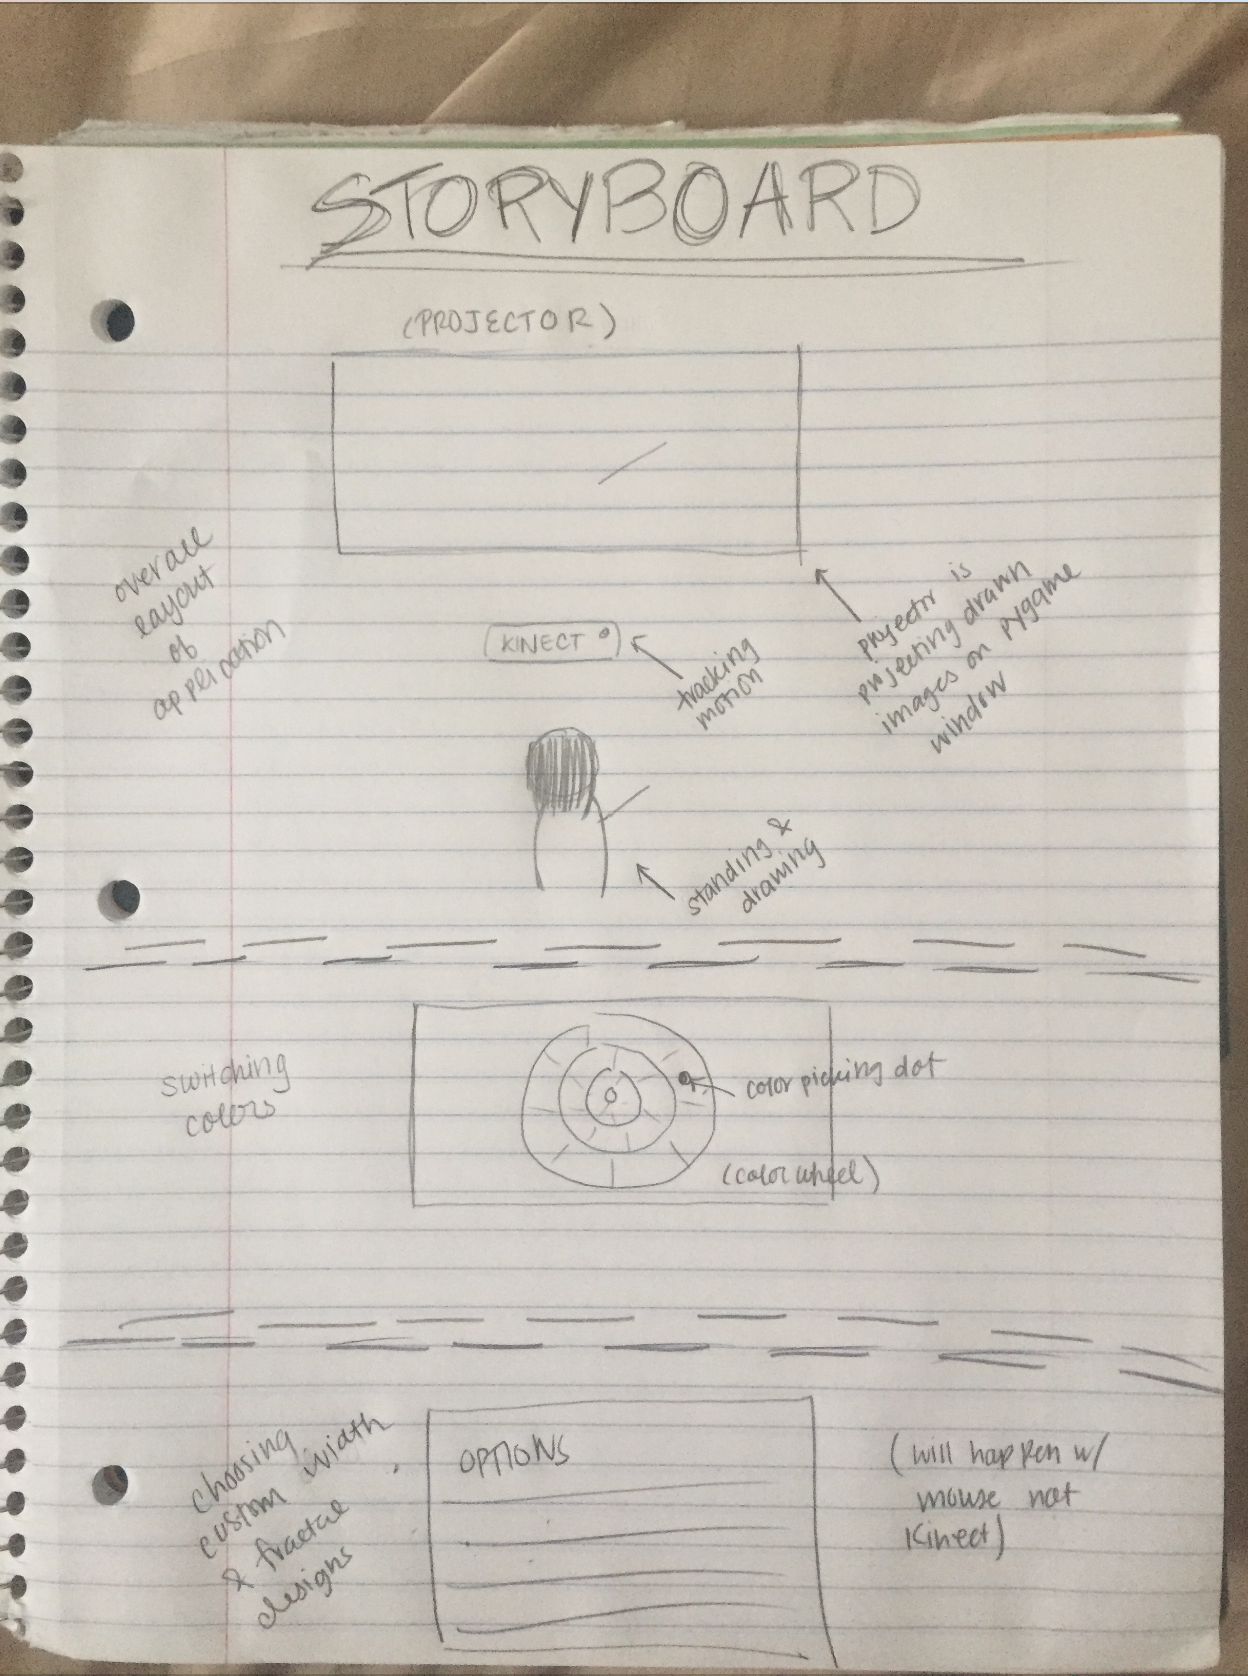 STORYBOARD
(PROJECTOR)
overall
layout
of
application
projector is
projecting drawn
images on pygame
window
KINECT
tracking
motion
standing &
drawing
switching
colors
color picking dot
(color wheel)
choosing
custom width
& fractal
designs
OPTIONS
(will happen w/
mouse not
Kinect)